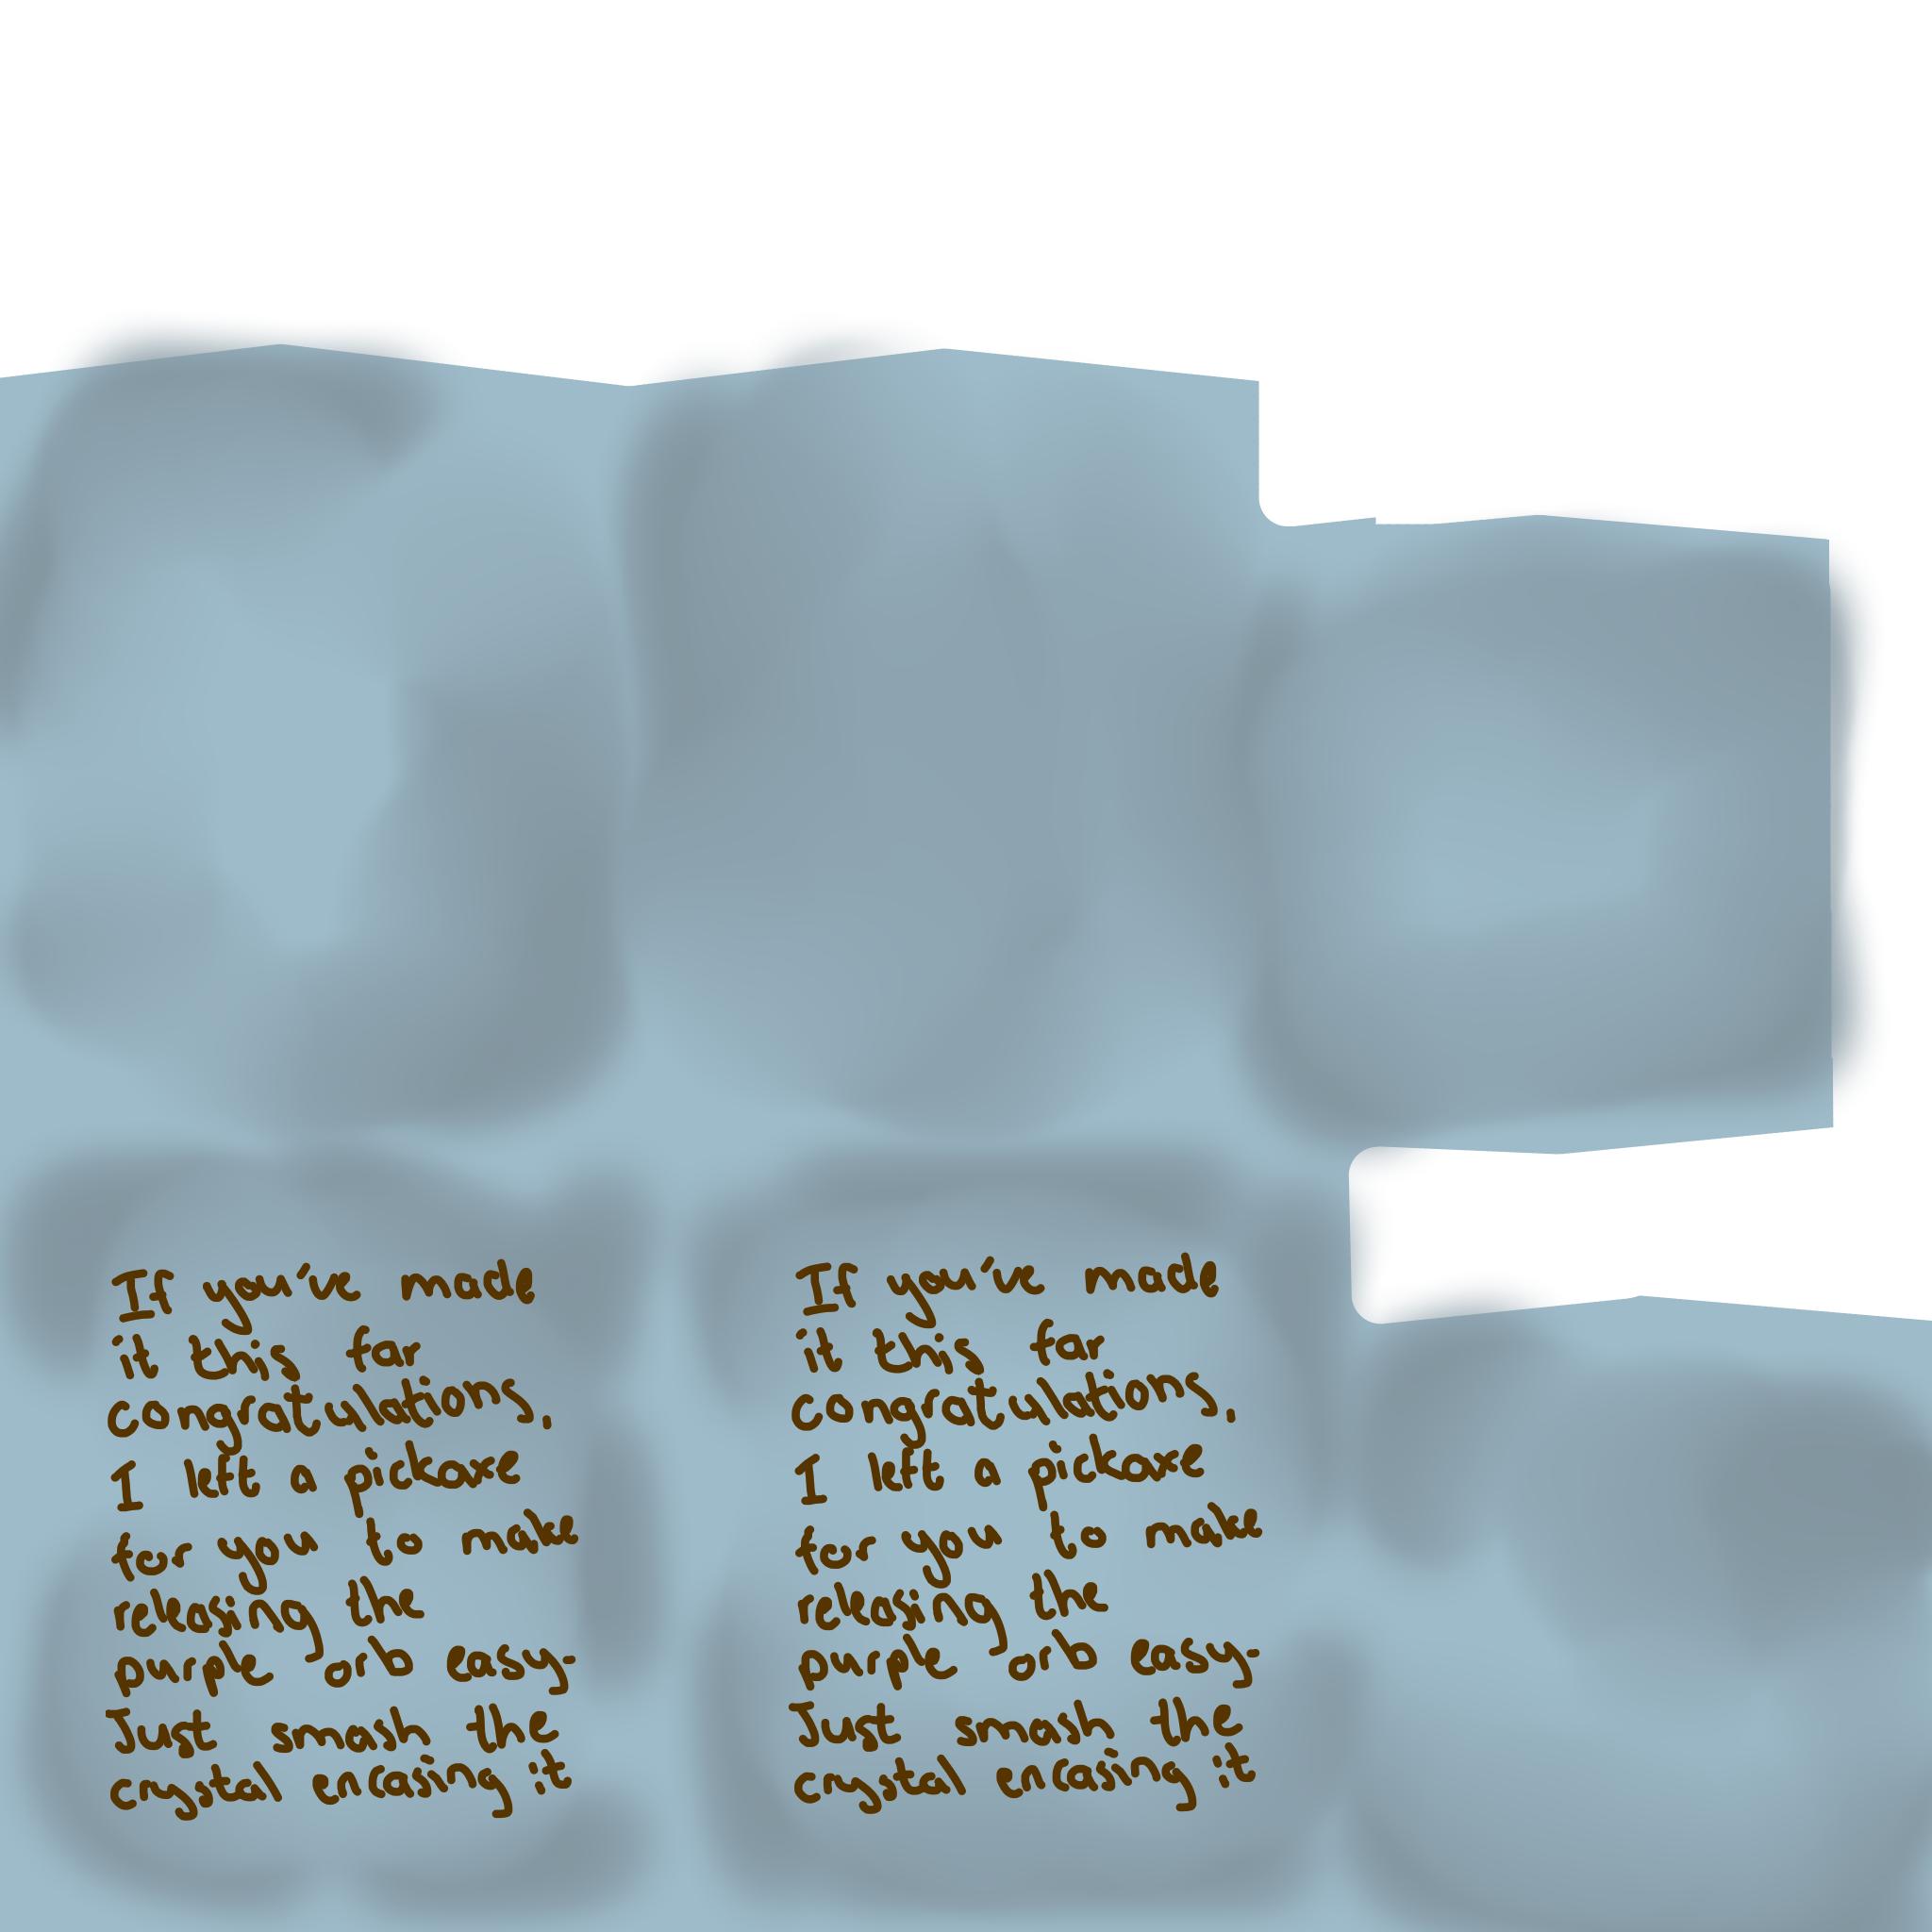 If you've made
it this far
congratulations.
I left a pickaxe
for you to make
releasing the
purple orb easy.
Just smash the
crystal encasing it
If you've made
it this far
congratulations.
I left a pickaxe
for you to make
releasing the
purple orb easy.
Just smash the
crystal encasing it